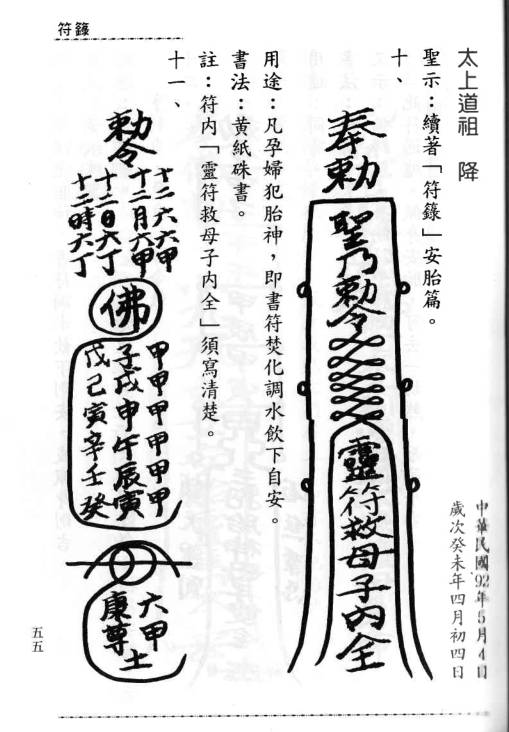 符籙
太上道祖　降
中華民國92年5月4日
歲次癸未年四月初四日
聖示：續著「符籙」安胎篇。
十、
奉勅
聖乃勅令
靈符救母子內全
用途：凡孕婦犯胎神，即書符焚化調水飲下自安。
書法：黃紙硃書。
註：符內「靈符救母子內全」須寫清楚。
十一、
勅令
十二六六甲
十二月六甲
十二日六丁
十二時六丁
佛
甲甲甲甲甲甲
子戌申午辰寅
戊己寅辛壬癸
六甲土
康尊
五五